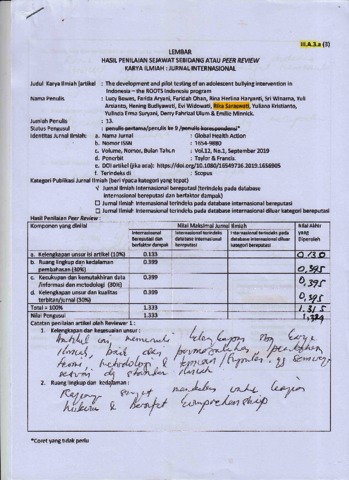 III.A.3.a (3)
LEMBAR
HASIL PENILAIAN SEJAWAT SEBIDANG ATAU PEER REVIEW
KARYA ILMIAH : JURNAL INTERNASIONAL
Judul Karya Ilmiah (artikel : The development and pilot testing of an adolescent bullying intervention in
Indonesia – the ROOTS Indonesia program
Nama Penulis : Lucy Bowes, Farida Aryani, Faridah Ohan, Rina Herlina Haryanti, Sri Winarna, Yuli
Arsianto, Hening Budiyawati, Evi Widowati, Rika Saraswati, Yuliana Kristianto,
Yulinda Erma Suryani, Derry Fahrizal Ulum & Emilie Minnick.
Jumlah Penulis : 13.
Status Pengusul : penulis pertama/penulis ke 9 /penulis korespondensi*
Identitas Jurnal Ilmiah: a. Nama Jurnal : Global Health Action
b. Nomor ISSN : 1654-9880
c. Volume, Nomor, Bulan Tahun : Vol.12, No.1, September 2019
d. Penerbit : Taylor & Francis.
e. DOI artikel (jika ada): https://doi.org/10.1080/16549716.2019.1656905
f. Terindeks di : Scopus
Kategori Publikasi Jurnal Ilmiah (beri √paca kategori yang tepat)
√ Jurnal Ilmiah Internasional bereputasi (terindeks pada database
internasional bereputasi dan berfaktor dampak)
□ Jurnal Ilmiah Internasional terindeks pada database internasional bereputasi
□ Jurnal Ilmiah Internasional terindeks pada database internasional diluar kategori bereputasi
Hasil Penilaian Peer Review :
Komponen yang dinilai Nilai Maksimal Jurnal Ilmiah Nilai Akhir yang Diperoleh
Internasional Bereputasi dan berfaktor dampak
Internasional terindeks database internasional bereputasi
Internasional terindeks pada database internasional diluar kategori bereputasi
a. Kelengkapan unsur isi artikel (10%) 0.133 0,130
b. Ruang lingkup dan kedalaman pembahasan (30%) 0.399 0,395
c. Kecukupan dan kemutakhiran data /informasi dan metodologi (30%) 0.399 0,395
d. Kelengkapan unsur dan kualitas terbitan/jurnal (30%) 0.399 0,395
Total = 100% 1.333 1.315
Nilai Pengusul 1.333
Catatan penilaian artikel oleh Reviewer 1 :
1. Kelengkapan dan kesesuaian unsur :
2. Ruang lingkup dan kedalaman :
*Coret yang tidak perlu